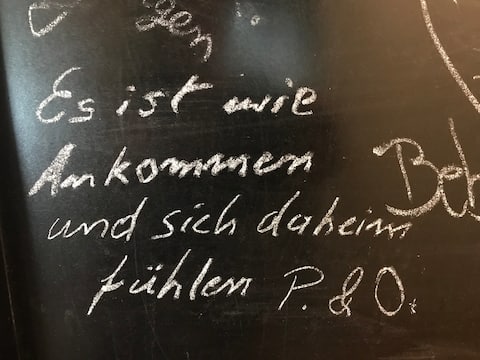 gen
Es ist wie
Ankommen
und sich daheim
fühlen P. & O.
Beh